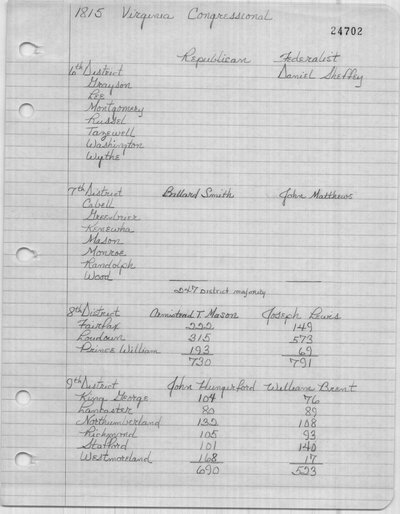 1815 Virginia Congressional
24702
Republican Federalist
6th District Daniel Sheffey
Grayson
Lee
Montgomery
Russel
Tazewell
Washington
Wythe
7th District Ballard Smith John Matthews
Cabell
Greenbrier
Kenewha
Mason
Monroe
Randolph
Wood
247 District majority
8th District Armistead T. Mason Joseph Lewis
Fairfax 222 149
Loudoun 315 573
Prince William 193 69
730 791
9th District John Hungerford William Brent
King George 104 76
Lancaster 80 89
Northumberland 132 108
Richmond 105 93
Stafford 101 140
Westmoreland 168 17
690 523